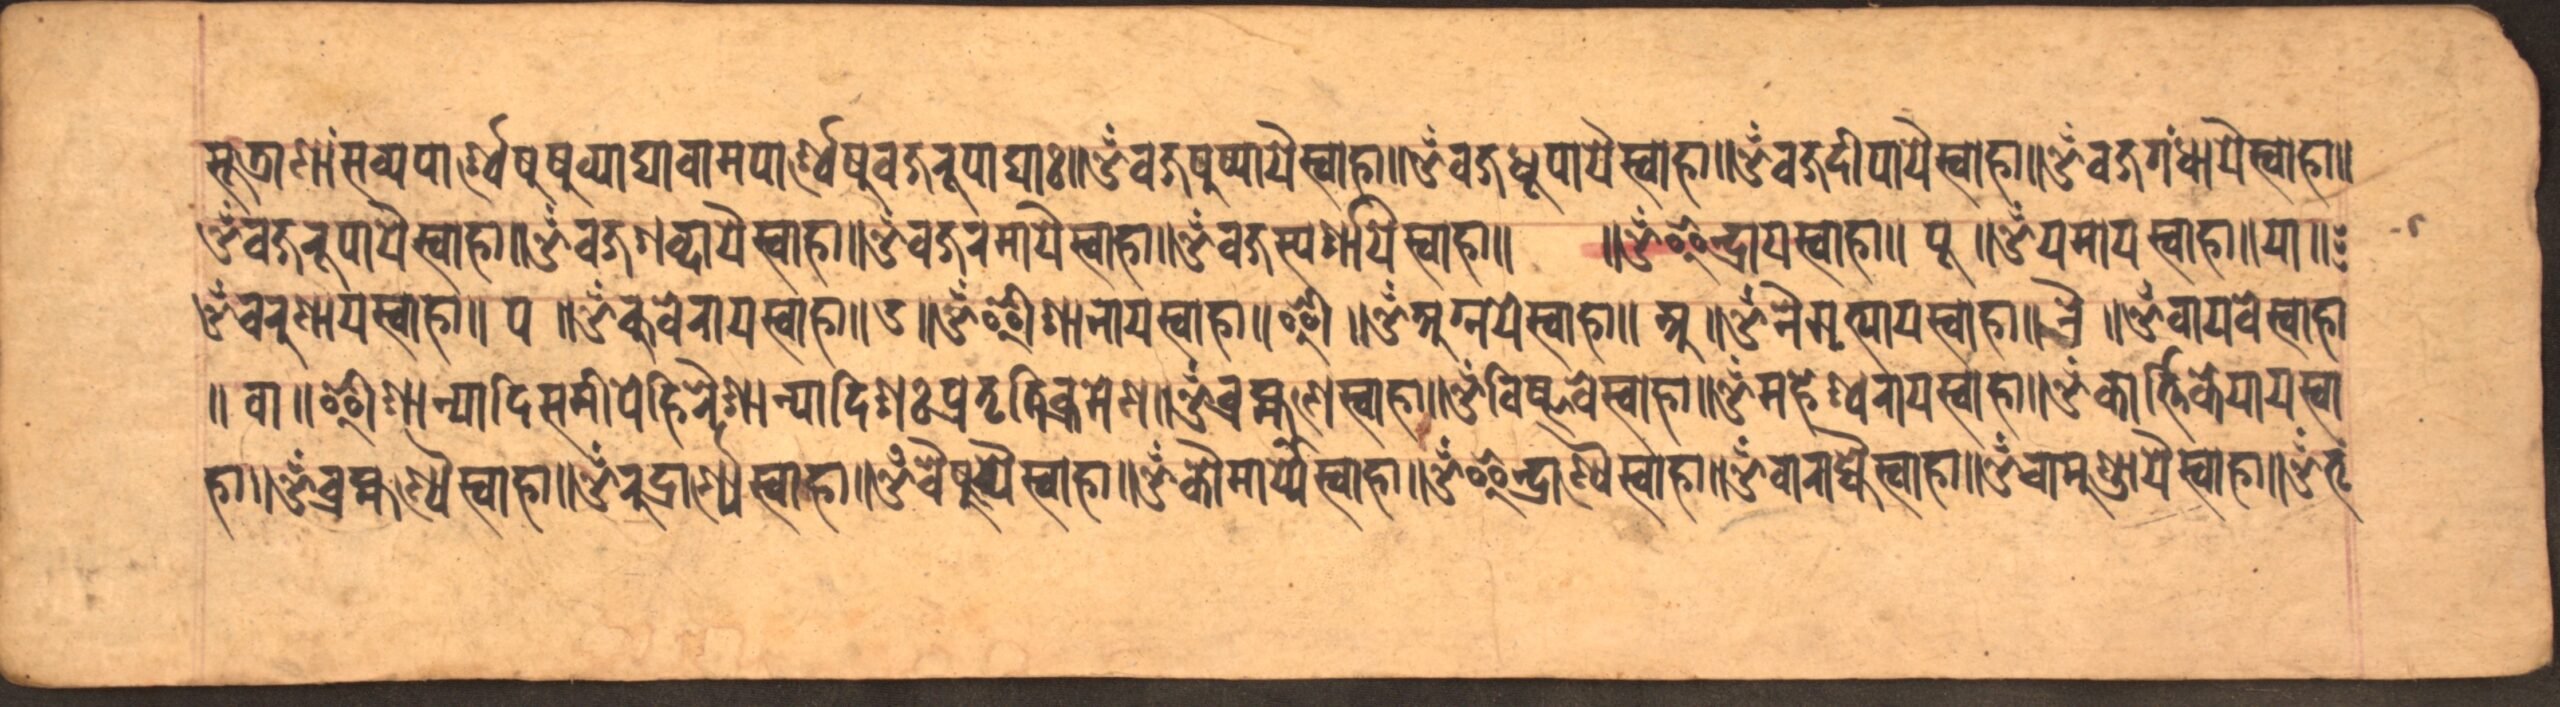 सूत्राणांसव्यपार्श्वेषुषुव्याद्यावामपार्श्वेषुवज्ररूपाद्याः॥ॐवज्रपुष्पायैस्वाहा॥ॐवज्रधूपायैस्वाहा॥ॐवज्रदीपायैस्वाहा॥ॐवज्रगंधायैस्वाहा॥
ॐवज्ररूपायैस्वाहा॥ॐवज्रशब्दायैस्वाहा॥ॐवज्ररमायैस्वाहा॥ॐवज्रस्पर्शायैस्वाहा॥ ॥ॐइन्द्रायस्वाहा॥ पू ॥ॐयमायस्वाहा॥या॥
ॐवरुणायस्वाहा॥ प ॥ॐकुवेरायस्वाहा॥उ॥ॐईशानायस्वाहा॥ई॥ॐअग्नयेस्वाहा॥ अ ॥ॐनैमृत्यायस्वाहा॥नै॥ॐवायवेस्वाहा
॥ वा ॥ईशान्यादिसमीपेहिरैशान्यादिशःप्रतृतिक्रमेण॥ॐब्रह्मणेस्वाहा॥ॐविष्णवेस्वाहा॥ॐमहेश्वरायस्वाहा॥ॐकार्त्तिकेयायस्वा
हा॥ॐब्रह्मण्यैस्वाहा॥ॐरुद्राण्यैस्वाहा॥ॐवैष्णव्यैस्वाहा॥ॐकौमार्य्यैस्वाहा॥ॐइन्द्राण्यैस्वाहा॥ॐवाराह्यैस्वाहा॥ॐचामुण्डायैस्वाहा॥ॐभृं